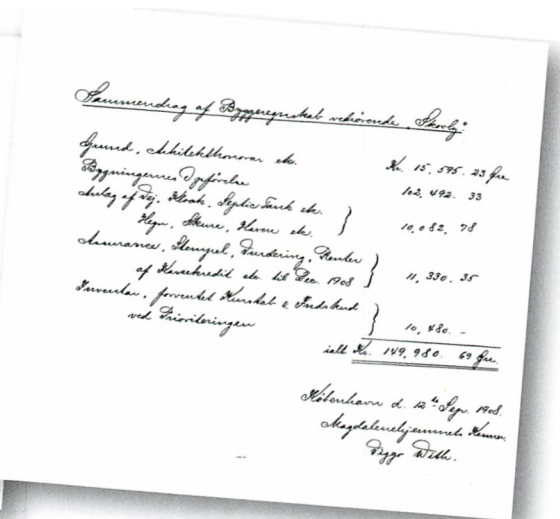 Sammendrag af Byggeregnskab vedrørende „Skovly".
Grund, Arkitekthonorar etc. Kr. 15,595. 23 Øre
Bygningernes Opførelse 102,492. 33
Anlæg af Vej, Kloak, Septic Tank etc.
Hegn, Skure, Haven etc. } 10,082, 78
Assurance, Stempel, Vurdering, Renter
af Kassekredit etc. til Dec. 1908 } 11,330. 35
Inventar, forventet Kurstab & Indskud
ved Prioriteringen } 10,480. -
ialt Kr. 149,980. 69 Øre.
København d. 12te Sep. 1908.
Magdalenehjemmets
Viggo